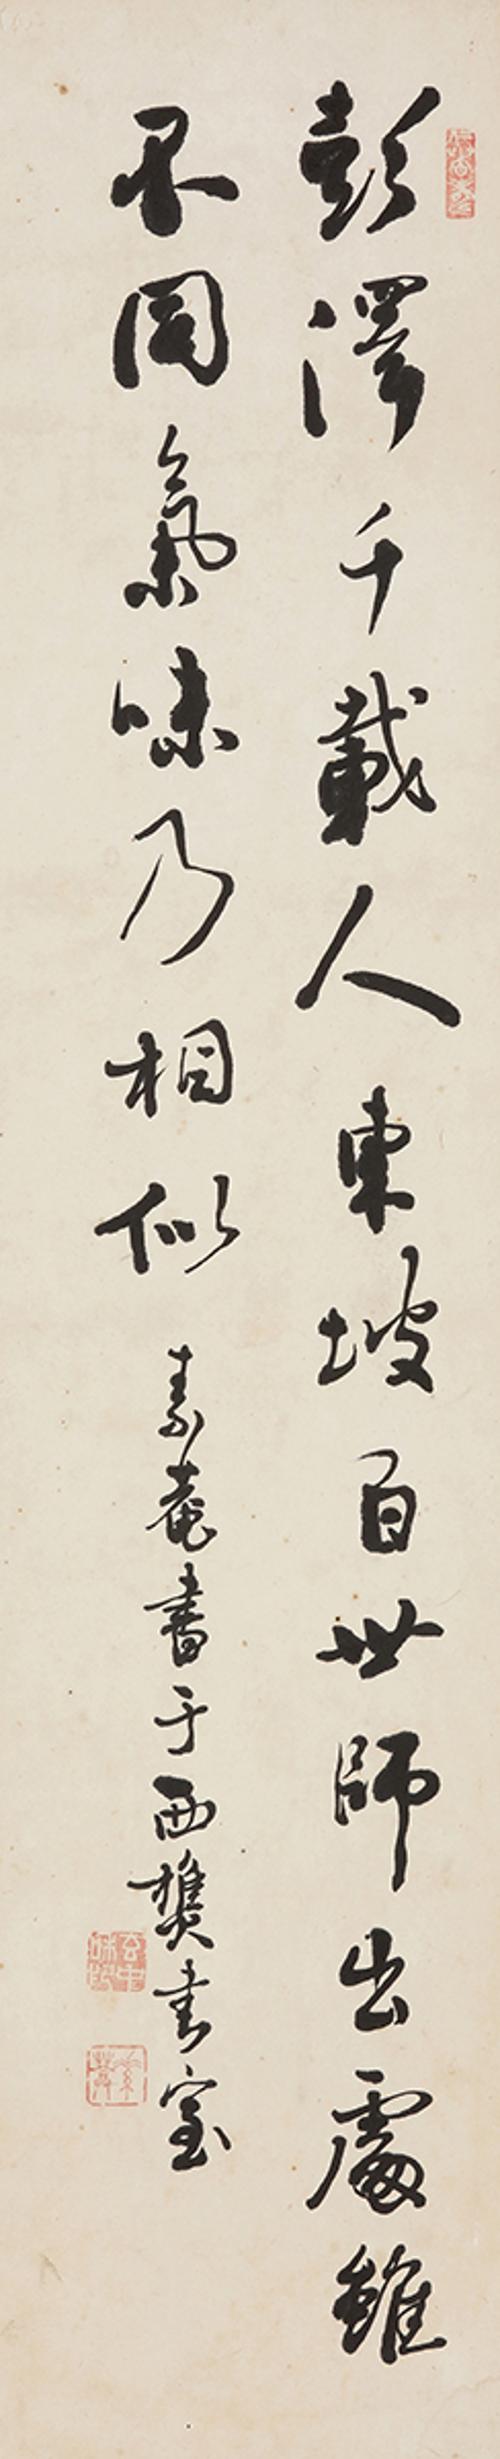 彭澤千載人東坡百世師出處雖
不同氣味乃相似
素菴書于西樵書室